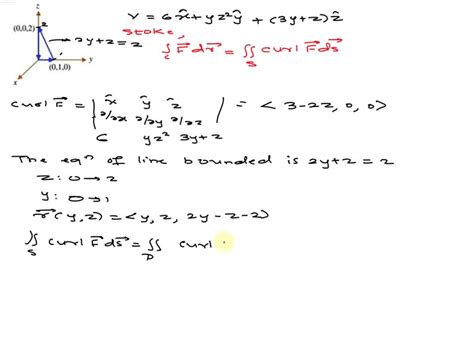 z
(0,0,2)
2
2y+z=2
y
(0,1,0)
x
v = 6x̂ + yz²ŷ + (3y+z)ẑ
stoke,
∫_C F⃗ dr⃗ = ∬_S curl F⃗ ds⃗
curl F⃗ = | x̂ ŷ ẑ | = < 3-2z, 0, 0>
∂/∂x ∂/∂y ∂/∂z
6 yz² 3y+z
The eqⁿ of line bounded is 2y+z = 2
z: 0→2
y: 0→1
r⃗(y,z) = <y, z, 2y-z-2>
∬_S curl F⃗ ds⃗ = ∬_D curl